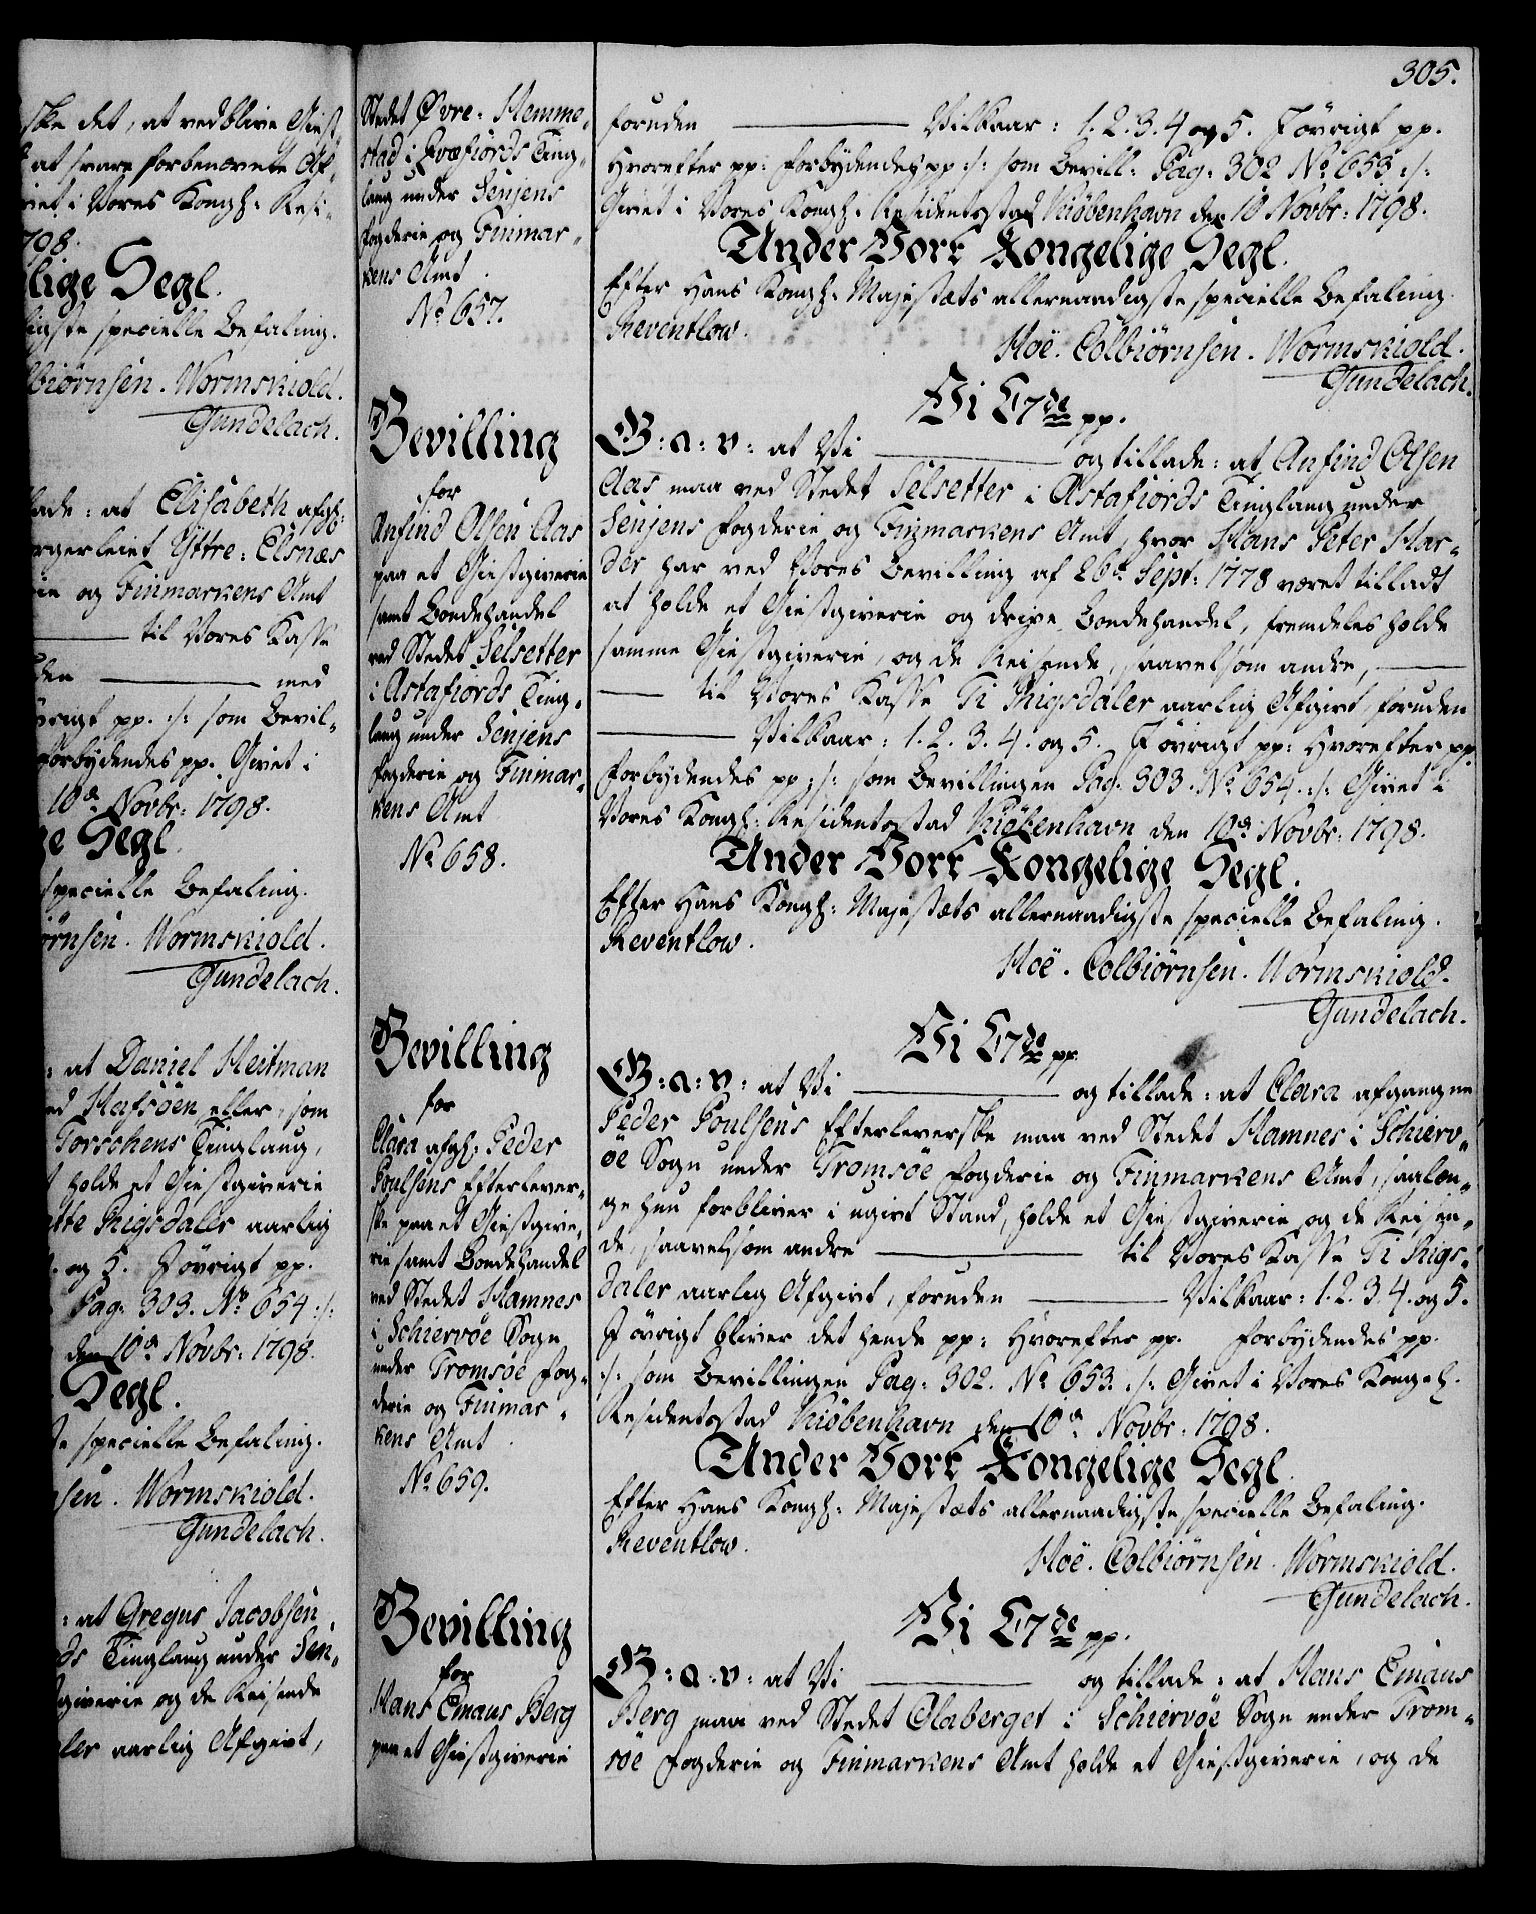 305.
ske det, at vedblive Giest-
at svare forbenævnte Af-
ivet i Vores Kongl: Resi-
798.
lige Segl.
igste specielle Befaling.
lbiörnsen. Wormskiold.
Gundelach.
lade: at Elisabeth afgl:
orgerleiet Yttre-Elsnæs
rie og Finmarkens Amt
——— til Vores Kasse
den ——— med
övrigt pp. :/: som Bevil-
forbydendes pp. Givet i
10de Novbr: 1798.
ge Segl.
specielle Befaling.
örnsen. Wormskiold.
Gundelach.
: at Daniel Heitman
ed Hafsöen eller, som
Torschens Tinglaug,
holde et Giestgiverie
atte Rigsdaler aarlig
. og 5. I övrigt pp.
Pag: 303. No 654 :/:
den 10de Novbr: 1798.
Segl.
te specielle Befaling.
nsen. Wormskiold.
Gundelach.
: at Gregus Jacobsen
ds Tinglaug under Sen-
giverie og de Reisende
ler aarlig Afgivt,
Stedet Övre-Hemme-
stad i Qvæfiords Ting-
laug under Senjens
Fogderie og Finmar-
kens Amt.
No 657.
Bevilling
for
Anfind Olsen Aas
paa et Giestgiverie
samt Bondehandel
ved Stedet Selsetter
i Astafiords Ting-
laug under Senjens
Fogderie og Finmar-
kens Amt
No 658.
Bevilling
for
Clara afgl: Peder
Poulsens Efterlever-
ske paa et Giestgive-
rie samt Bondehandel
ved Stedet Hamnes
i Schiervöe Sogn
under Tromsöe Fog-
derie og Finmar-
kens Amt.
No 659.
Bevilling
for
Hans Emaus Berg
paa et Giestgiverie
foruden ——— Vilkaar: 1. 2. 3. 4 og 5. I övrigt pp.
Hvorefter pp: Forbydendes pp :/: som Bevill: Pag: 302 No 653 :/:
Givet i Vores Kongl: Residentsstad Kiöbenhavn den 10 Novbr: 1798.
Under Vort Kongelige Segl.
Efter Hans Kongl: Majestæts allernaadigste specielle Befaling.
Reventlow.
Hoë. Colbiörnsen. Wormskiold.
Gundelach.
Vi C7de pp.
G: a: v: at Vi ——— og tillade: at Anfind Olsen
Aas maa ved Stedet Selsetter i Astafiords Tinglaug under
Senjens Fogderie og Finmarkens Amt, hvor Hans Peter Har-
der har ved Vores Bevilling af 26de Sept: 1778 været tilladt
at holde et Giestgiverie og drive Bondehandel, fremdeles holde
samme Giestgiverie, og de Reisende, saavelsom andre, ———
——— til Vores Kasse Ti Rigsdaler aarlig Afgivt, foruden
——— Vilkaar: 1. 2. 3. 4. og 5. I övrigt pp: Hvorefter pp.
Forbydendes pp :/: som Bevillingen Pag. 303. No 654. :/: Givet i
Vores Kongl: Residentsstad Kiöbenhavn den 10de Novbr: 1798.
Under Vort Kongelige Segl.
Efter Hans Kongl: Majestæts allernaadigste specielle Befaling.
Reventlow.
Hoë. Colbiörnsen. Wormskiold.
Gundelach.
Vi C7de pp.
G: a: v: at Vi ——— og tillade: at Clara afgangne
Peder Poulsens Efterleverske maa ved Stedet Hamnes i Schierv-
öe Sogn under Tromsöe Fogderie og Finmarkens Amt, saalæn-
ge hun forbliver i ugivt Stand, holde et Giestgiverie og de Reisen-
de, saavelsom andre ——— til Vores Kasse Ti Rigs-
daler aarlig Afgivt, foruden ——— Vilkaar: 1. 2. 3. 4. og 5.
I övrigt bliver det hende pp: Hvorefter pp. Forbydendes pp.
:/: som Bevillingen Pag: 302. No 653. :/: Givet i Vores Kongel.
Residentsstad Kiöbenhavn den 10de Novbr: 1798.
Under Vort Kongelige Segl.
Efter Hans Kongl: Majestæts allernaadigste specielle Befaling.
Reventlow.
Hoë. Colbiörnsen. Wormskiold.
Gundelach.
Vi C7de pp.
G: a: v: at Vi ——— og tillade: at Hans Emaus
Berg maa ved Stedet Olaberget i Schiervöe Sogn under Trom-
söe Fogderie og Finmarkens Amt holde et Giestgiverie, og de